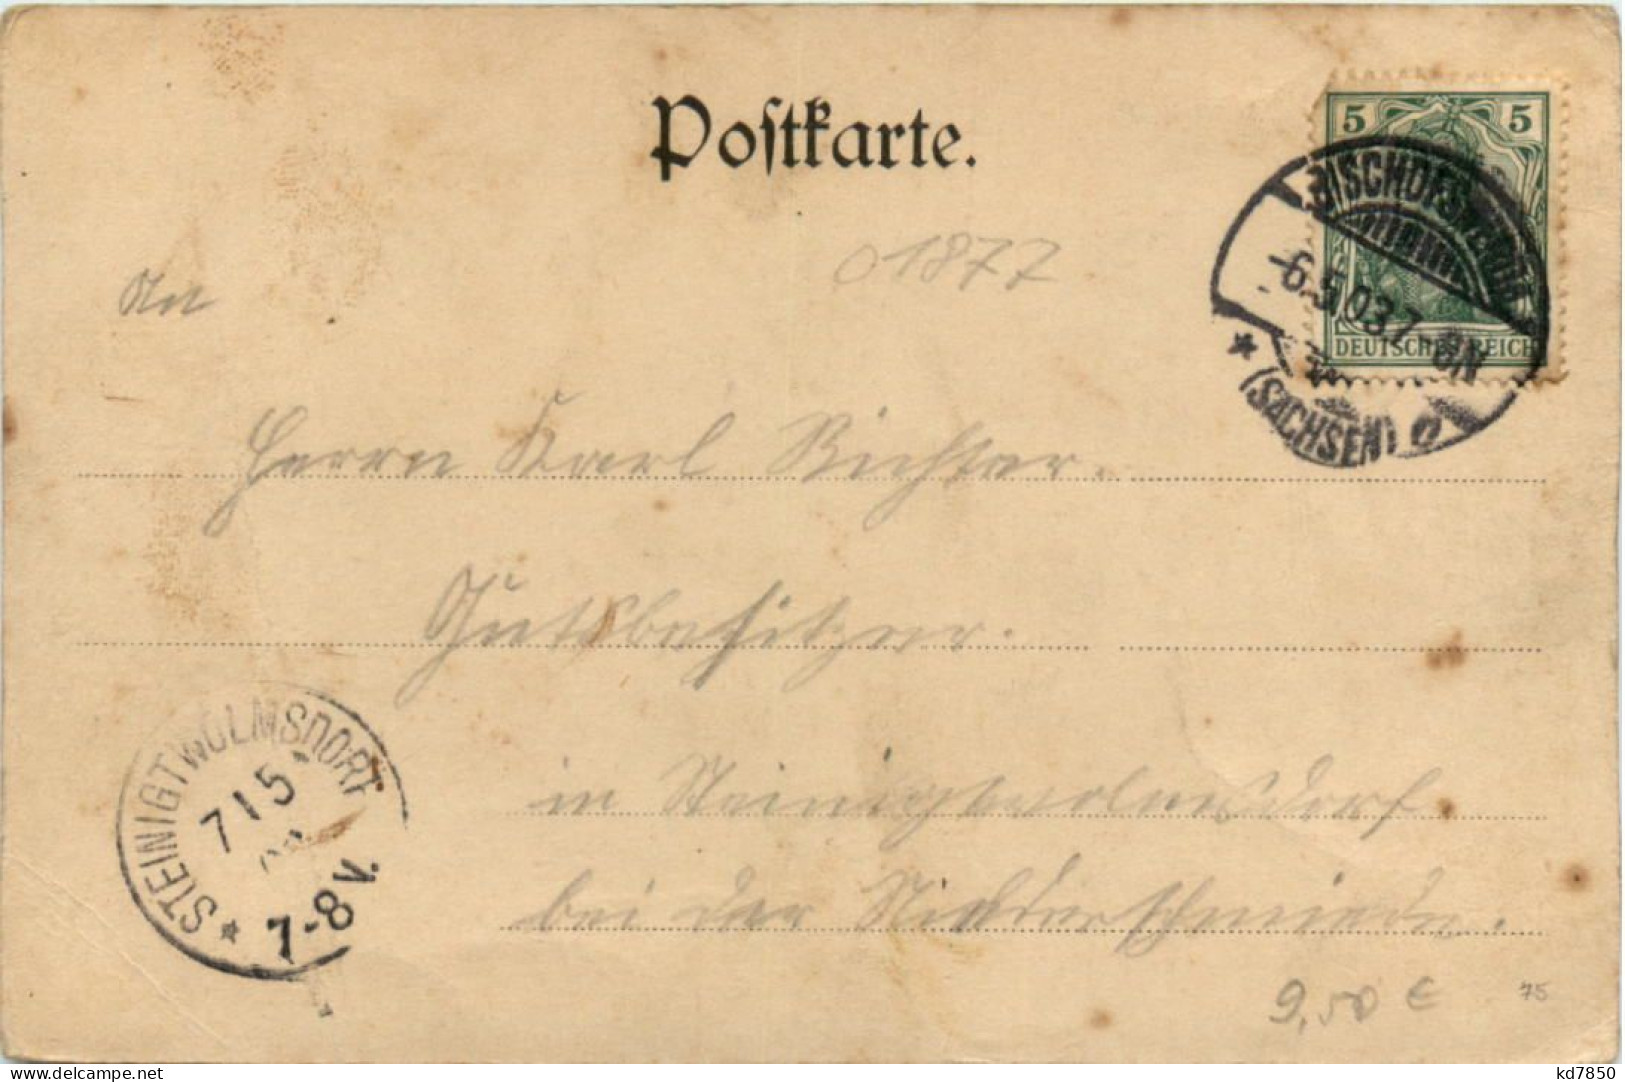 Postkarte.
5 5
DEUTSCHES REICH
BISCHOFSWERDA
-6.5.03.7-8N
(SACHSEN)
01877
An
Herrn Karl Richter.
Gutsbesitzer.
in Steinigtwolmsdorf
bei der Niederschmiede.
STEINIGTWOLMSDORF
7 5
7-8V.
9,50 €
75
delcampe.net
kd7850